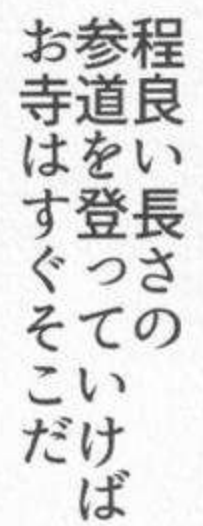 程良い長さの
参道を登っていけば
お寺はすぐそこだ